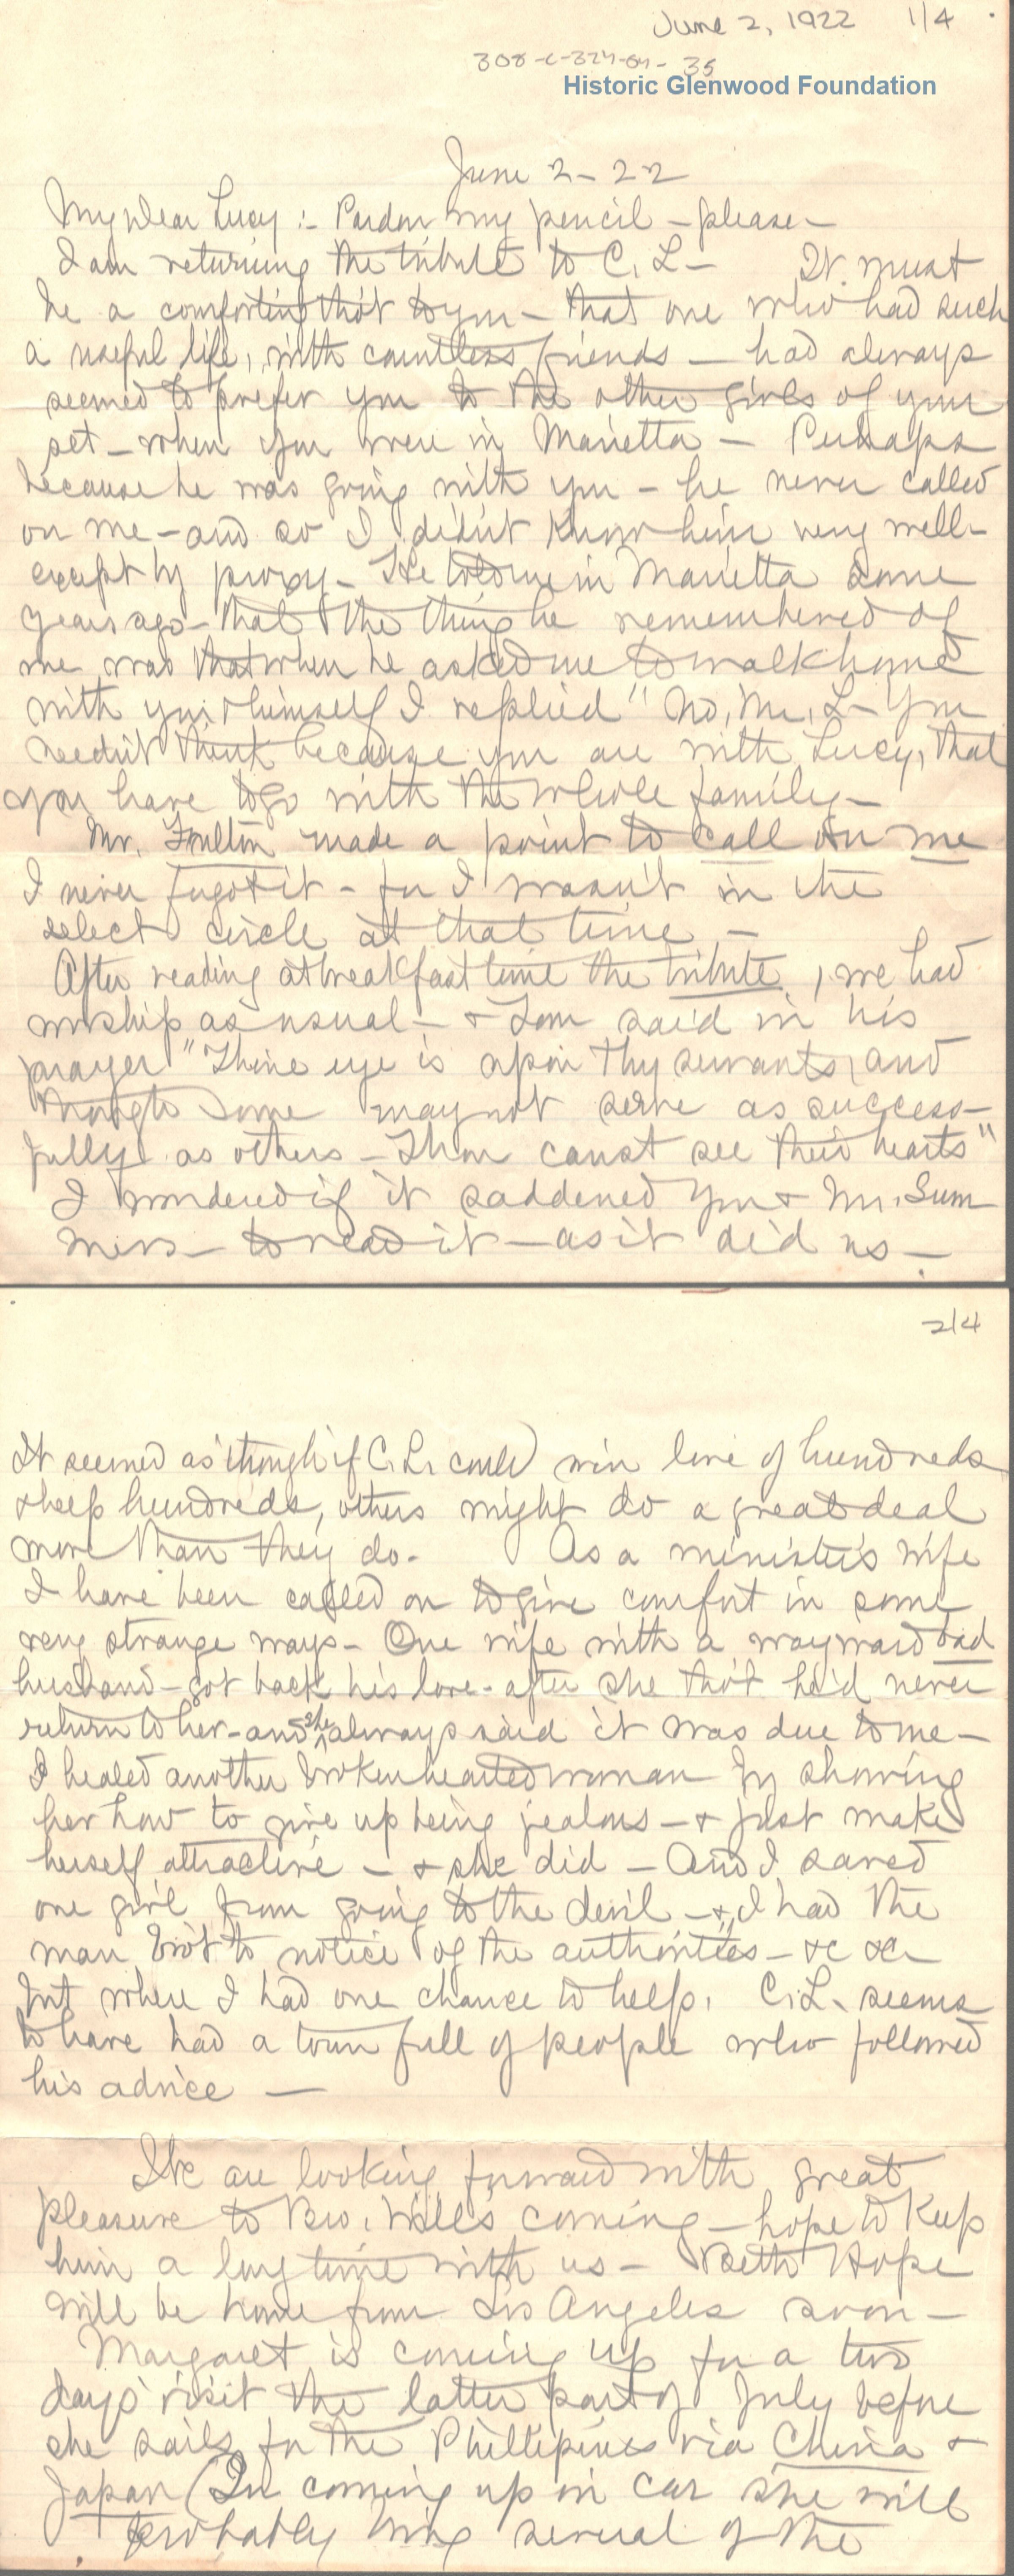 June 2, 1922 1/4
308-C-324-04-35
Historic Glenwood Foundation
June 2-22
My dear Lucy :- Pardon my pencil - please -
I am returning the tribute to C. L- It must
be a comforting tho't to you - that one who had such
a useful life, with countless friends - had always
seemed to prefer you to the other girls of your
set - when you were in Marietta - Perhaps
because he was going with you - he never called
on me - and so I didn't know him very well -
except by proxy - He told me in Marietta some
years ago - that the thing he remembered of
me was that when he asked me to walk home
with you & himself I replied "No, Mr. L- You
needn't think because you are with Lucy, that
you have to go with the whole family -
Mr. Fulton made a point to call on me
I never forgot it - for I wasn't in the
select circle at that time -
After reading at breakfast time the tribute, we had
worship as usual - & Tom said in his
prayer "Thine eye is upon Thy servants, and
though some may not serve as success-
fully as others - Thou canst see their hearts"
I wondered if it saddened you & Mr. Sum
mers - to read it - as it did us -
2/4
It seemed as though if C. L. could win love of hundreds
& help hundreds, others might do a great deal
more than they do. As a minister's wife
I have been called on to give comfort in some
very strange ways - One wife with a wayward bad
husband - got back his love - after she tho't he'd never
return to her - and she always said it was due to me -
I healed another brokenhearted woman by showing
her how to give up being jealous - & just make
herself attractive - & she did - And I saved
one girl from going to the devil - & I had the
man bro't to notice of the authorities - &c &c
but where I had one chance to help, C. L. seems
to have had a town full of people who followed
his advice -
We are looking forward with great
pleasure to Bro. Will's coming - hope to keep
him a long time with us - Beth Hope
will be home from Los Angeles soon -
Margaret is coming up for a two
days' visit the latter part of July before
she sails for the Phillipines via China &
Japan (In coming up in car she will
probably bring several of the